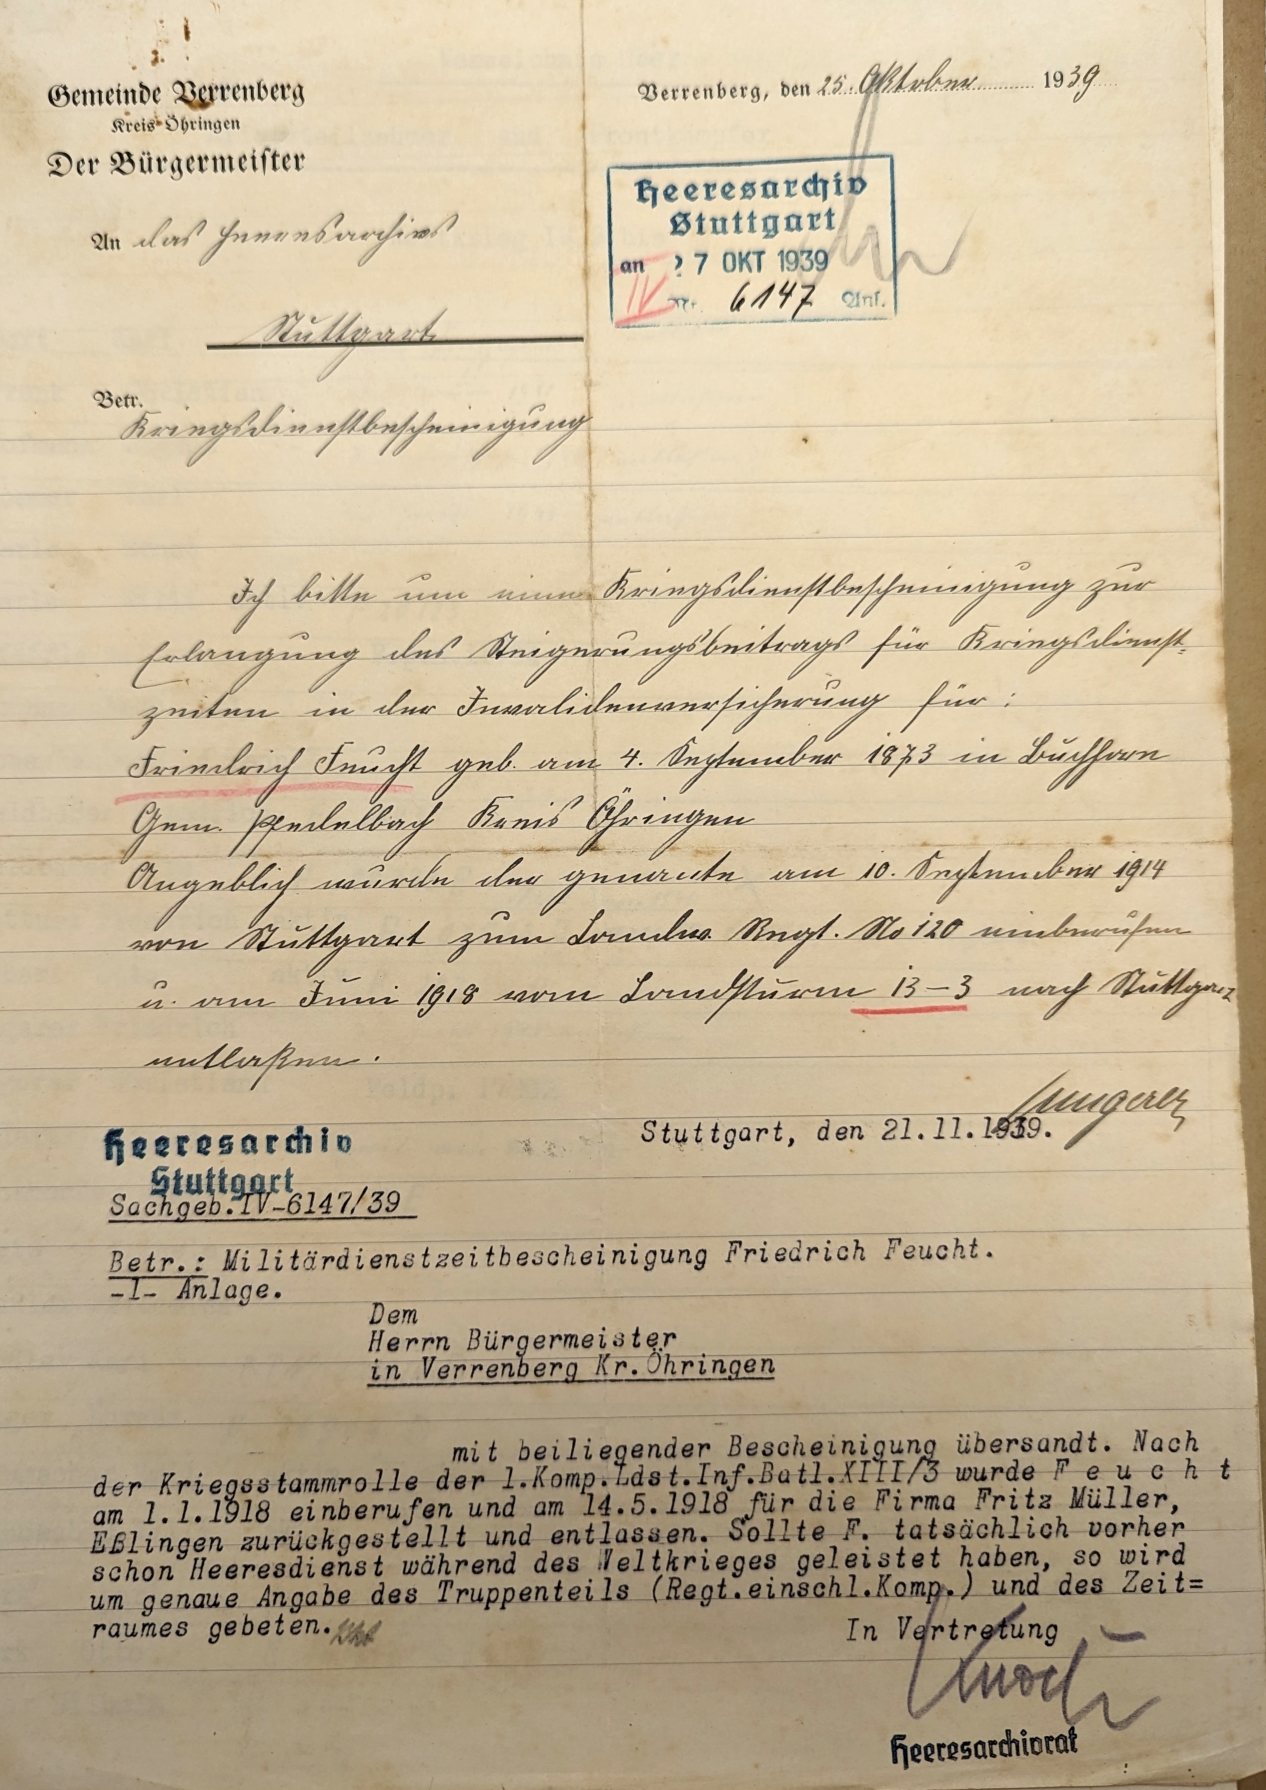 Gemeinde Verrenberg
Kreis Öhringen
Der Bürgermeister
Verrenberg, den 25. Oktober 1939
Heeresarchiv
Stuttgart
an 27 OKT 1939
IV Nr. 6147 Anl.
An das Heeresarchivs
Stuttgart
Betr.
Kriegsdienstbescheinigung
Ich bitte um eine Kriegsdienstbescheinigung zur
Erlangung des Steigerungsbeitrags für Kriegsdienst=
zeiten in der Invalidenversicherung für:
Friedrich Feucht geb. am 4. September 1873 in Buchhorn
Gem. Pfedelbach Kreis Öhringen
Angeblich wurde der genante am 10. September 1914
von Stuttgart zum Landw. Regt. No 120 einberufen
u. am Juni 1918 vom Landsturm 13-3 nach Stuttgart
entlaßen.
Stuttgart, den 21.11.1939.
Heeresarchiv
Stuttgart
Sachgeb.IV-6147/39
Betr.: Militärdienstzeitbescheinigung Friedrich Feucht.
-1- Anlage.
Dem
Herrn Bürgermeister
in Verrenberg Kr.Öhringen
mit beiliegender Bescheinigung übersandt. Nach
der Kriegsstammrolle der 1.Komp.Ldst.Inf.Batl.XIII/3 wurde F e u c h t
am 1.1.1918 einberufen und am 14.5.1918 für die Firma Fritz Müller,
Eßlingen zurückgestellt und entlassen. Sollte F. tatsächlich vorher
schon Heeresdienst während des Weltkrieges geleistet haben, so wird
um genaue Angabe des Truppenteils (Regt.einschl.Komp.) und des Zeit=
raumes gebeten.
In Vertretung
Heeresarchivrat